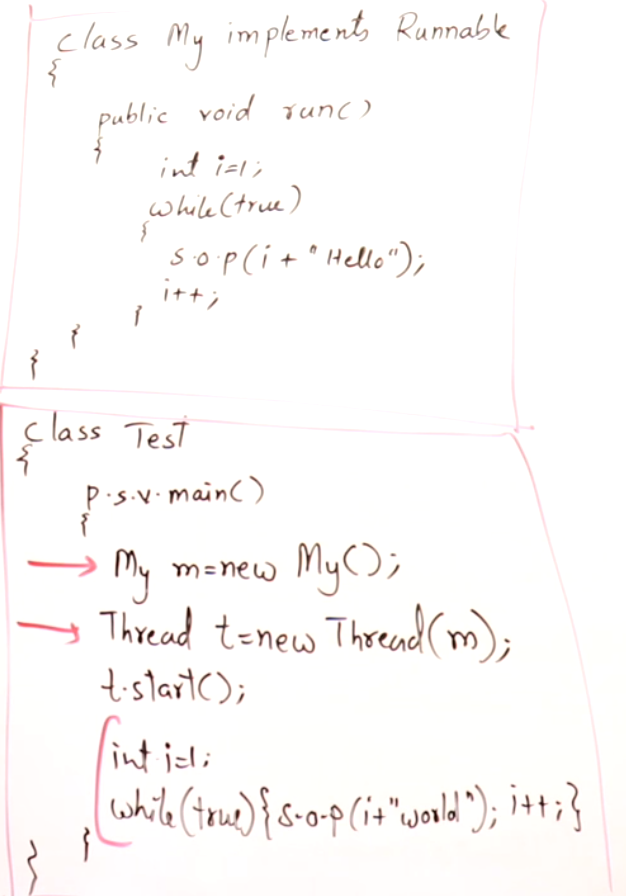 class My implements Runnable
{
public void run()
{
int i=1;
while(true)
{
s.o.p(i + "Hello");
i++;
}
}
}
class Test
{
p.s.v.main()
{
My m=new My();
Thread t=new Thread(m);
t.start();
int i=1;
while(true){s.o.p(i+"world"); i++;}
}
}